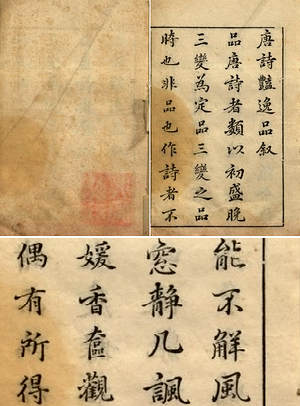 唐詩豔逸品叙
品唐詩者類以初盛晚
三變為定品三變之品
時也非品也作詩者不
能不解風
窓靜几諷
媛香奩觀
偶有所得